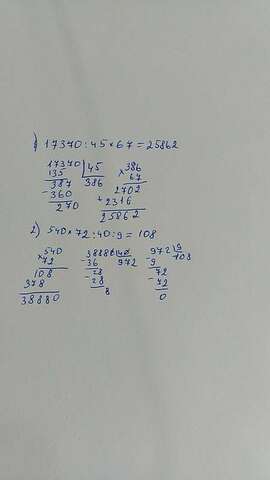 1) 17370 : 45 × 67 = 25862
17370 | 45
135 386
387
- 360
270
× 386
67
2702
+ 2316
25862
2) 540 × 72 : 40 : 9 = 108
× 540
72
108
378
38880
38880 | 40
- 36 972
28
- 28
8
- 972 | 9
9 108
72
- 72
0